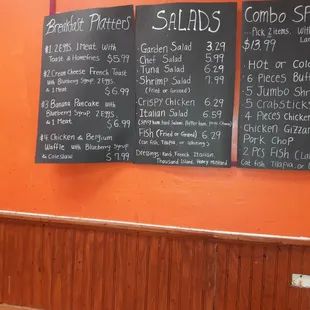 Breakfast Platters
#1 2 EGGS, 1 Meat With
Toast & Homefries $5.99
#2 Cream Cheese French Toast
With Blueberry Syrup, 2 EGGS,
& 1 Meat $6.99
#3 Banana Pancake With
Blueberry Syrup 2 EGGS.
& 1 Meat $6.99
#4 Chicken & Belgium
Waffle With Blueberry Syrup
& Coleslaw $7.99
SALADS
Garden Salad 3.29
Chef Salad 5.99
Tuna Salad 6.29
Shrimp Salad 7.99
(Fried or Grilled)
Crispy Chicken 6.29
Italian Salad 6.59
Fish (Fried or Grilled) 6.29
(Cat Fish, Tilapia or Whiting)
Dressing: Ranch, French, Italian
Thousand Island, Honey Mustard
Combo SP
Pick 2 items. With
$13.99
Hot or Col
6 Pieces Buff
5 Jumbo Shr
5 Crabsticks
4 Pieces Chicken
Chicken Gizzar
Pork Chop
2 Pcs Fish
Cat Fish Tilapia or